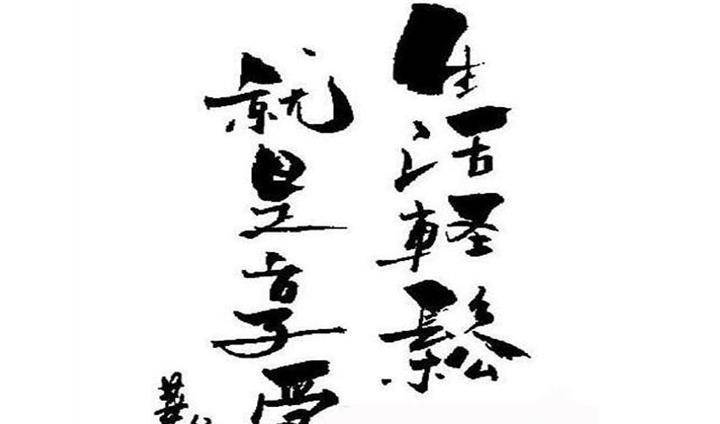 生活輕鬆
就是享受